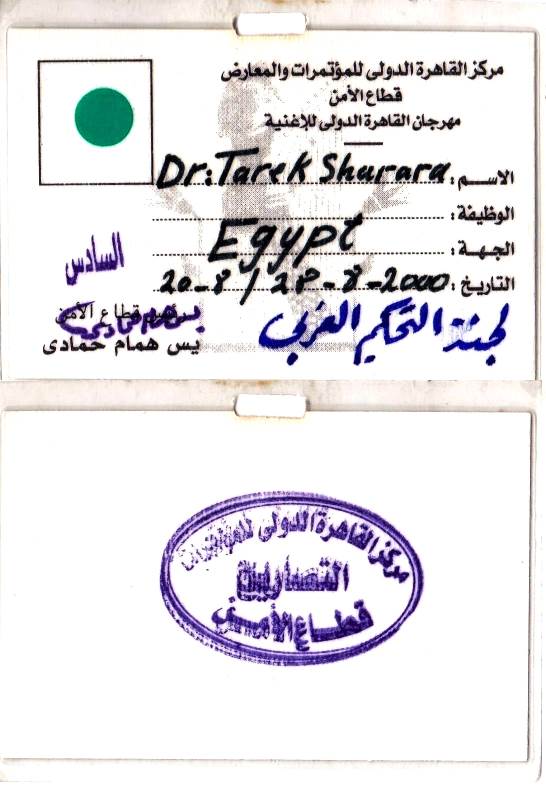 مركز القاهرة الدولى للمؤتمرات والمعارض
قطاع الأمن
مهرجان القاهرة الدولى للإغنية
الاسم: Dr: Tarek Sharara
الوظيفة:
الجهة: Egypt
التاريخ: 20-8 / 28-8-2000
السادس
رئيس قطاع الأمن
يس همام حمادى
لجنة التحكيم العربي
مركز القاهرة الدولى للمؤتمرات
التصاريح
قطاع الأمن